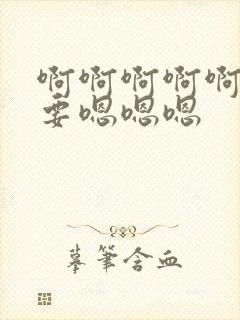 啊啊啊啊啊
要嗯嗯嗯
摹笔含血